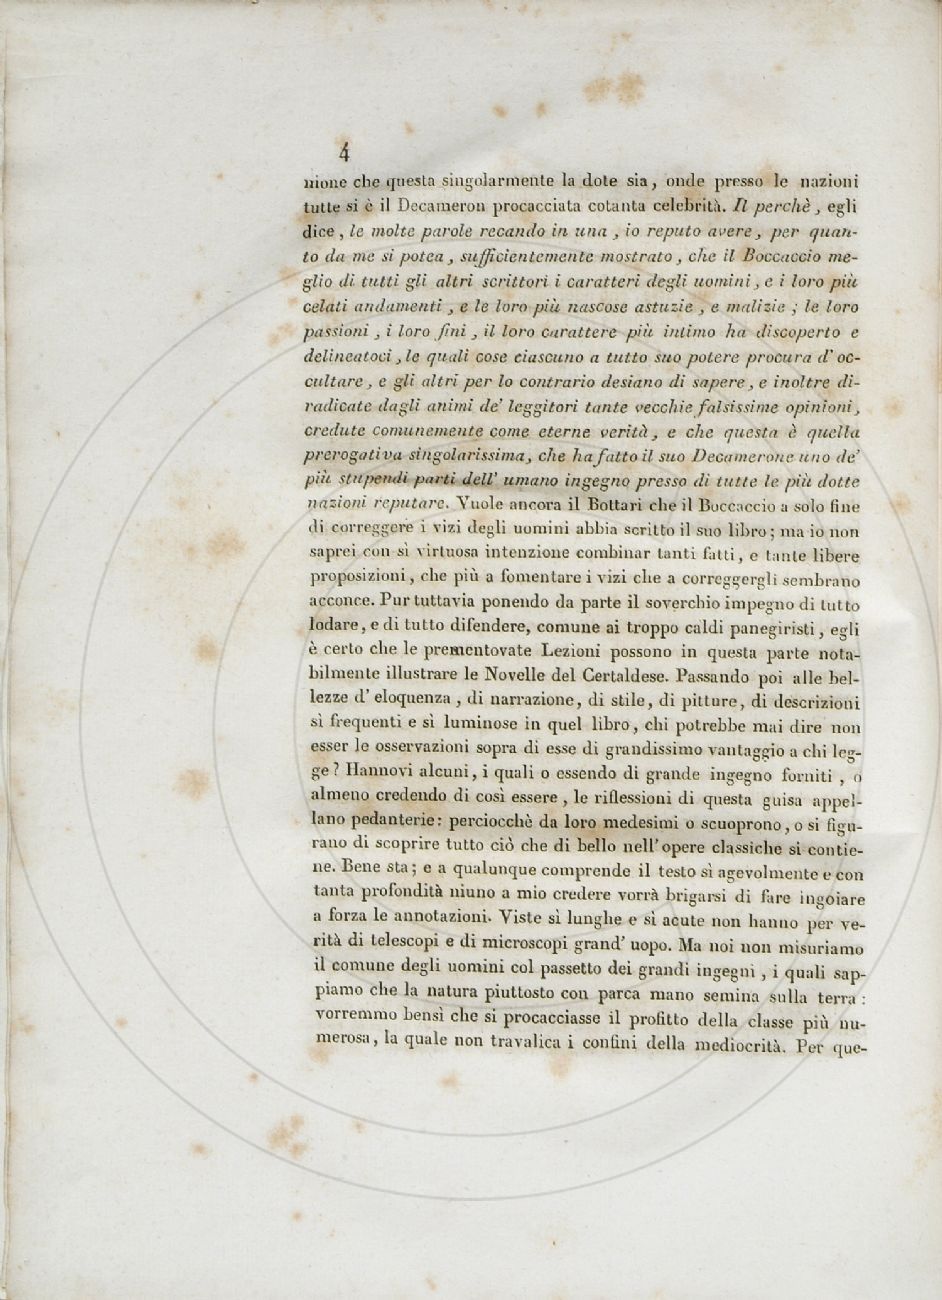 4
nione che questa singolarmente la dote sia, onde presso le nazioni
tutte si è il Decameron procacciata cotanta celebrità. Il perchè, egli
dice, le molte parole recando in una, io reputo avere, per quan-
to da me si potea, sufficientemente mostrato, che il Boccaccio me-
glio di tutti gli altri scrittori i caratteri degli uomini, e i loro più
celati andamenti, e le loro più nascose astuzie, e malizie; le loro
passioni, i loro fini, il loro carattere più intimo ha discoperto e
delineatoci, le quali cose ciascuno a tutto suo potere procura d' oc-
cultare, e gli altri per lo contrario desiano di sapere, e inoltre di-
radicate dagli animi de' leggitori tante vecchie falsissime opinioni,
credute comunemente come eterne verità, e che questa è quella
prerogativa singolarissima, che ha fatto il suo Decamerone uno de'
più stupendi parti dell' umano ingegno presso di tutte le più dotte
nazioni reputare. Vuole ancora il Bottari che il Boccaccio a solo fine
di correggere i vizi degli uomini abbia scritto il suo libro; ma io non
saprei con sì virtuosa intenzione combinar tanti fatti, e tante libere
proposizioni, che più a fomentare i vizi che a correggergli sembrano
acconce. Pur tuttavia ponendo da parte il soverchio impegno di tutto
lodare, e di tutto difendere, comune ai troppo caldi panegiristi, egli
è certo che le prementovate Lezioni possono in questa parte nota-
bilmente illustrare le Novelle del Certaldese. Passando poi alle bel-
lezze d' eloquenza, di narrazione, di stile, di pitture, di descrizioni
sì frequenti e sì luminose in quel libro, chi potrebbe mai dire non
esser le osservazioni sopra di esse di grandissimo vantaggio a chi leg-
ge? Hannovi alcuni, i quali o essendo di grande ingegno forniti, o
almeno credendo di così essere, le riflessioni di questa guisa appel-
lano pedanterie: perciocchè da loro medesimi o scuoprono, o si figu-
rano di scoprire tutto ciò che di bello nell' opere classiche si contie-
ne. Bene sta; e a qualunque comprende il testo sì agevolmente e con
tanta profondità niuno a mio credere vorrà brigarsi di fare ingoiare
a forza le annotazioni. Viste sì lunghe e sì acute non hanno per ve-
rità di telescopi e di microscopi grand' uopo. Ma noi non misuriamo
il comune degli uomini col passetto dei grandi ingegni, i quali sap-
piamo che la natura piuttosto con parca mano semina sulla terra:
vorremmo bensì che si procacciasse il profitto della classe più nu-
merosa, la quale non travalica i confini della mediocrità. Per que-